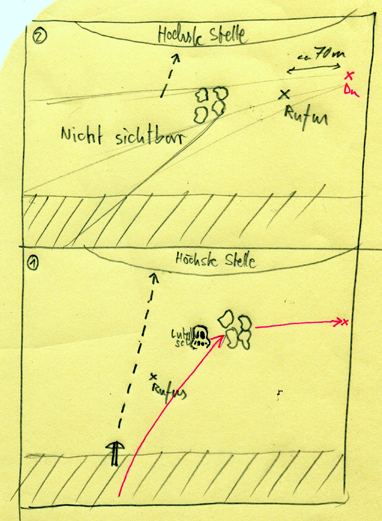 2
Höchste Stelle
ca 70m
Du
Rufus
Nicht sichtbar
1
Höchste Stelle
Rufus